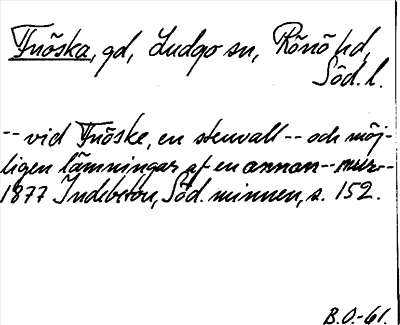 Fröska, gd, Ludgo sn, Rönö hd,
Söd. l.
-- vid Fröske, en stenvall -- och möj-
ligen lämningar af en annan -- mur --
1877 Indebetou, Söd. minnen, s. 152.
B.O.-61.